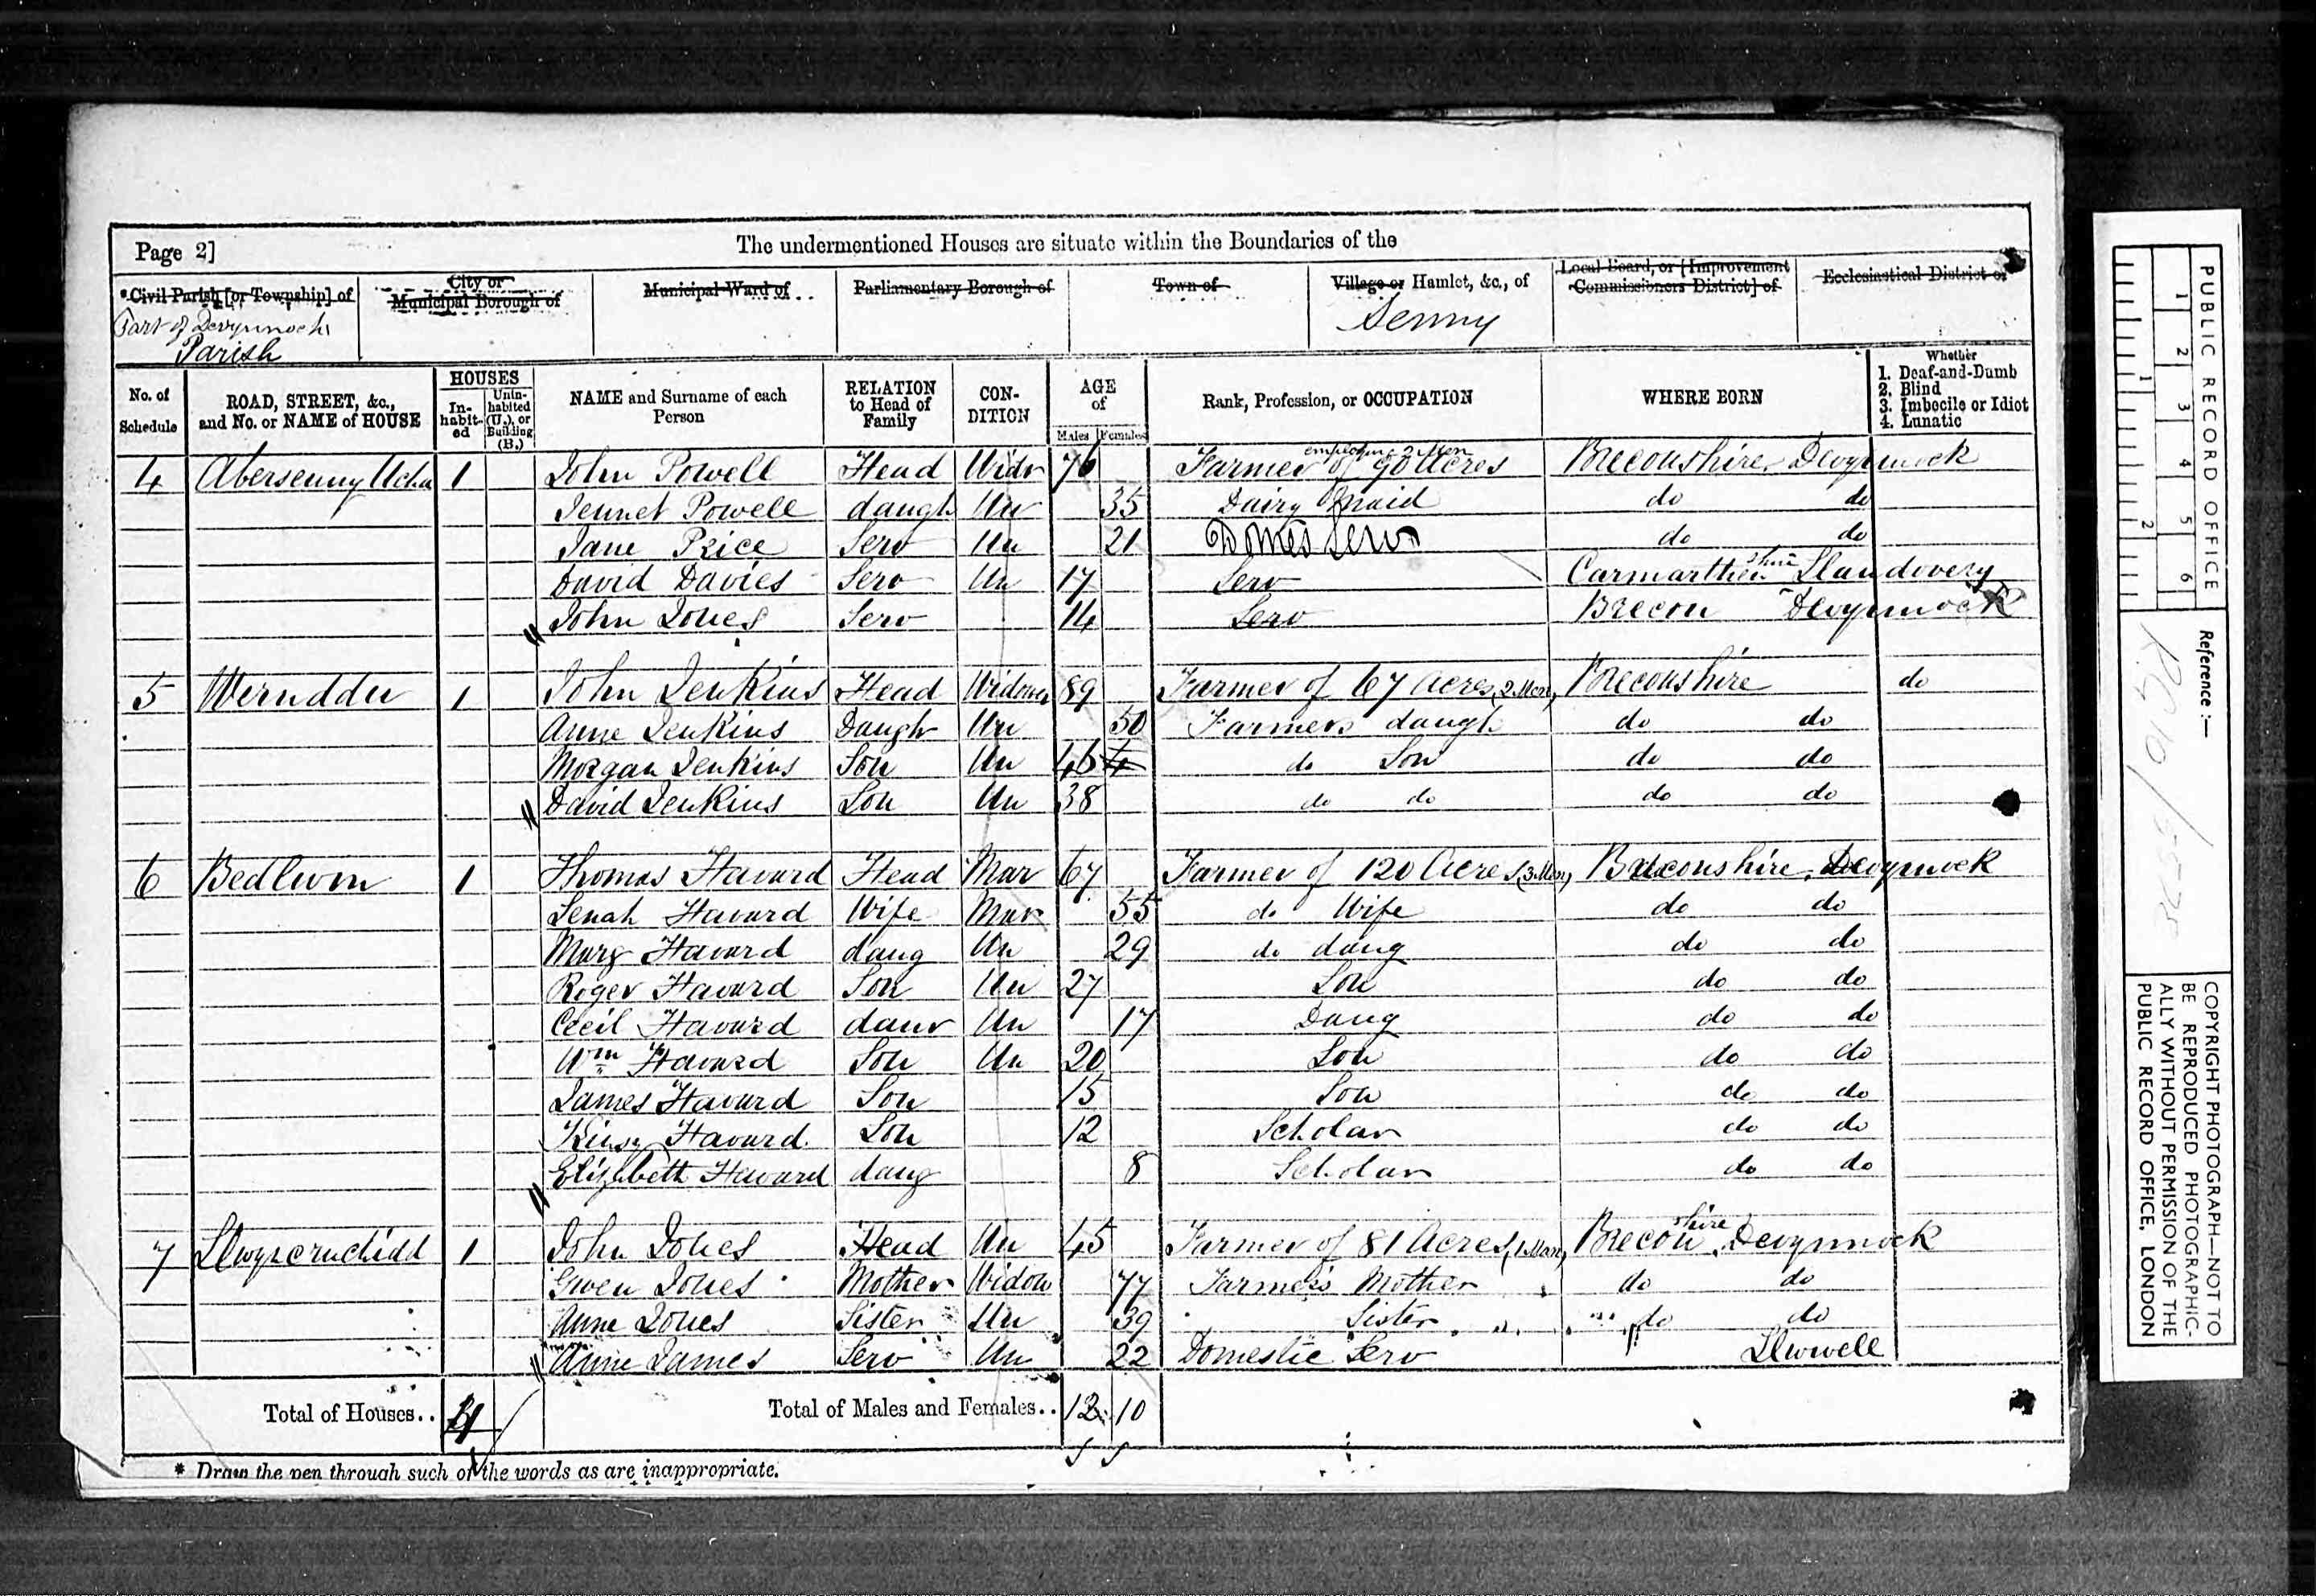 Page 2]
The undermentioned Houses are situate within the Boundaries of the
*Civil Parish [or Township] of
City or Municipal Borough of
Municipal Ward of
Parliamentary Borough of
Town of
Village or Hamlet, &c., of
Local Board, or [Improvement Commissioners District] of
Ecclesiastical District of
Part of Devynnock Parish
Senny
No. of Schedule
ROAD, STREET, &c., and No. or NAME of HOUSE
HOUSES
In-habit-ed
Unin-habited (U.), or Building (B.)
NAME and Surname of each Person
RELATION to Head of Family
CON-DITION
AGE of
Males Females
Rank, Profession, or OCCUPATION
WHERE BORN
Whether
1. Deaf-and-Dumb
2. Blind
3. Imbecile or Idiot
4. Lunatic
4 Abersenny Ucha 1 John Powell Head Widr 76 Farmer of 90 Acres employing 2 Men Breconshire Devynnock
Jennet Powell daugh Un 35 Dairy Maid do do
Jane Price Serv Un 21 Domes Serv do do
David Davies Serv Un 17 Serv Carmarthenshire Llandovery
John Jones Serv 14 Serv Brecon Devynnock
5 Wernddu 1 John Jenkins Head Widower 89 Farmer of 67 Acres, 2 Men, Breconshire do
Anne Jenkins Daugh Un 50 Farmers daugh do do
Morgan Jenkins Son Un do Son do do
David Jenkins Son Un 38 do do do do
6 1 Thomas Havard Head Mar 67 Farmer of 120 Acres, 3 Men, Breconshire, Devynnock
Senah Havard Wife Mar 55 do Wife do do
Marg Havard daug Un 29 do daug do do
Roger Havard Son Un 27 Son do do
Cecil Havard daur Un 17 Daug do do
Wm Havard Son Un 20 Son do do
James Havard Son 15 Son do do
Havard Son 12 Scholar do do
Elizabeth Havard daug 8 Scholar do do
7 1 John Jones Head Un 45 Farmer of 81 Acres, 1 Man, Breconshire, Devynnock
Gwen Jones Mother Widow 77 Farmers Mother do do
Anne Jones Sister Un 39 Sister do do
Anne James Serv Un 22 Domestic Serv Llywell
Total of Houses.. 4
Total of Males and Females.. 12 10
* Draw the pen through such of the words as are inappropriate.
PUBLIC RECORD OFFICE
1 2 3 4 5 6
1 2
Reference :—
RG 10/5575
COPYRIGHT PHOTOGRAPH—NOT TO
BE REPRODUCED PHOTOGRAPHIC-
ALLY WITHOUT PERMISSION OF THE
PUBLIC RECORD OFFICE, LONDON